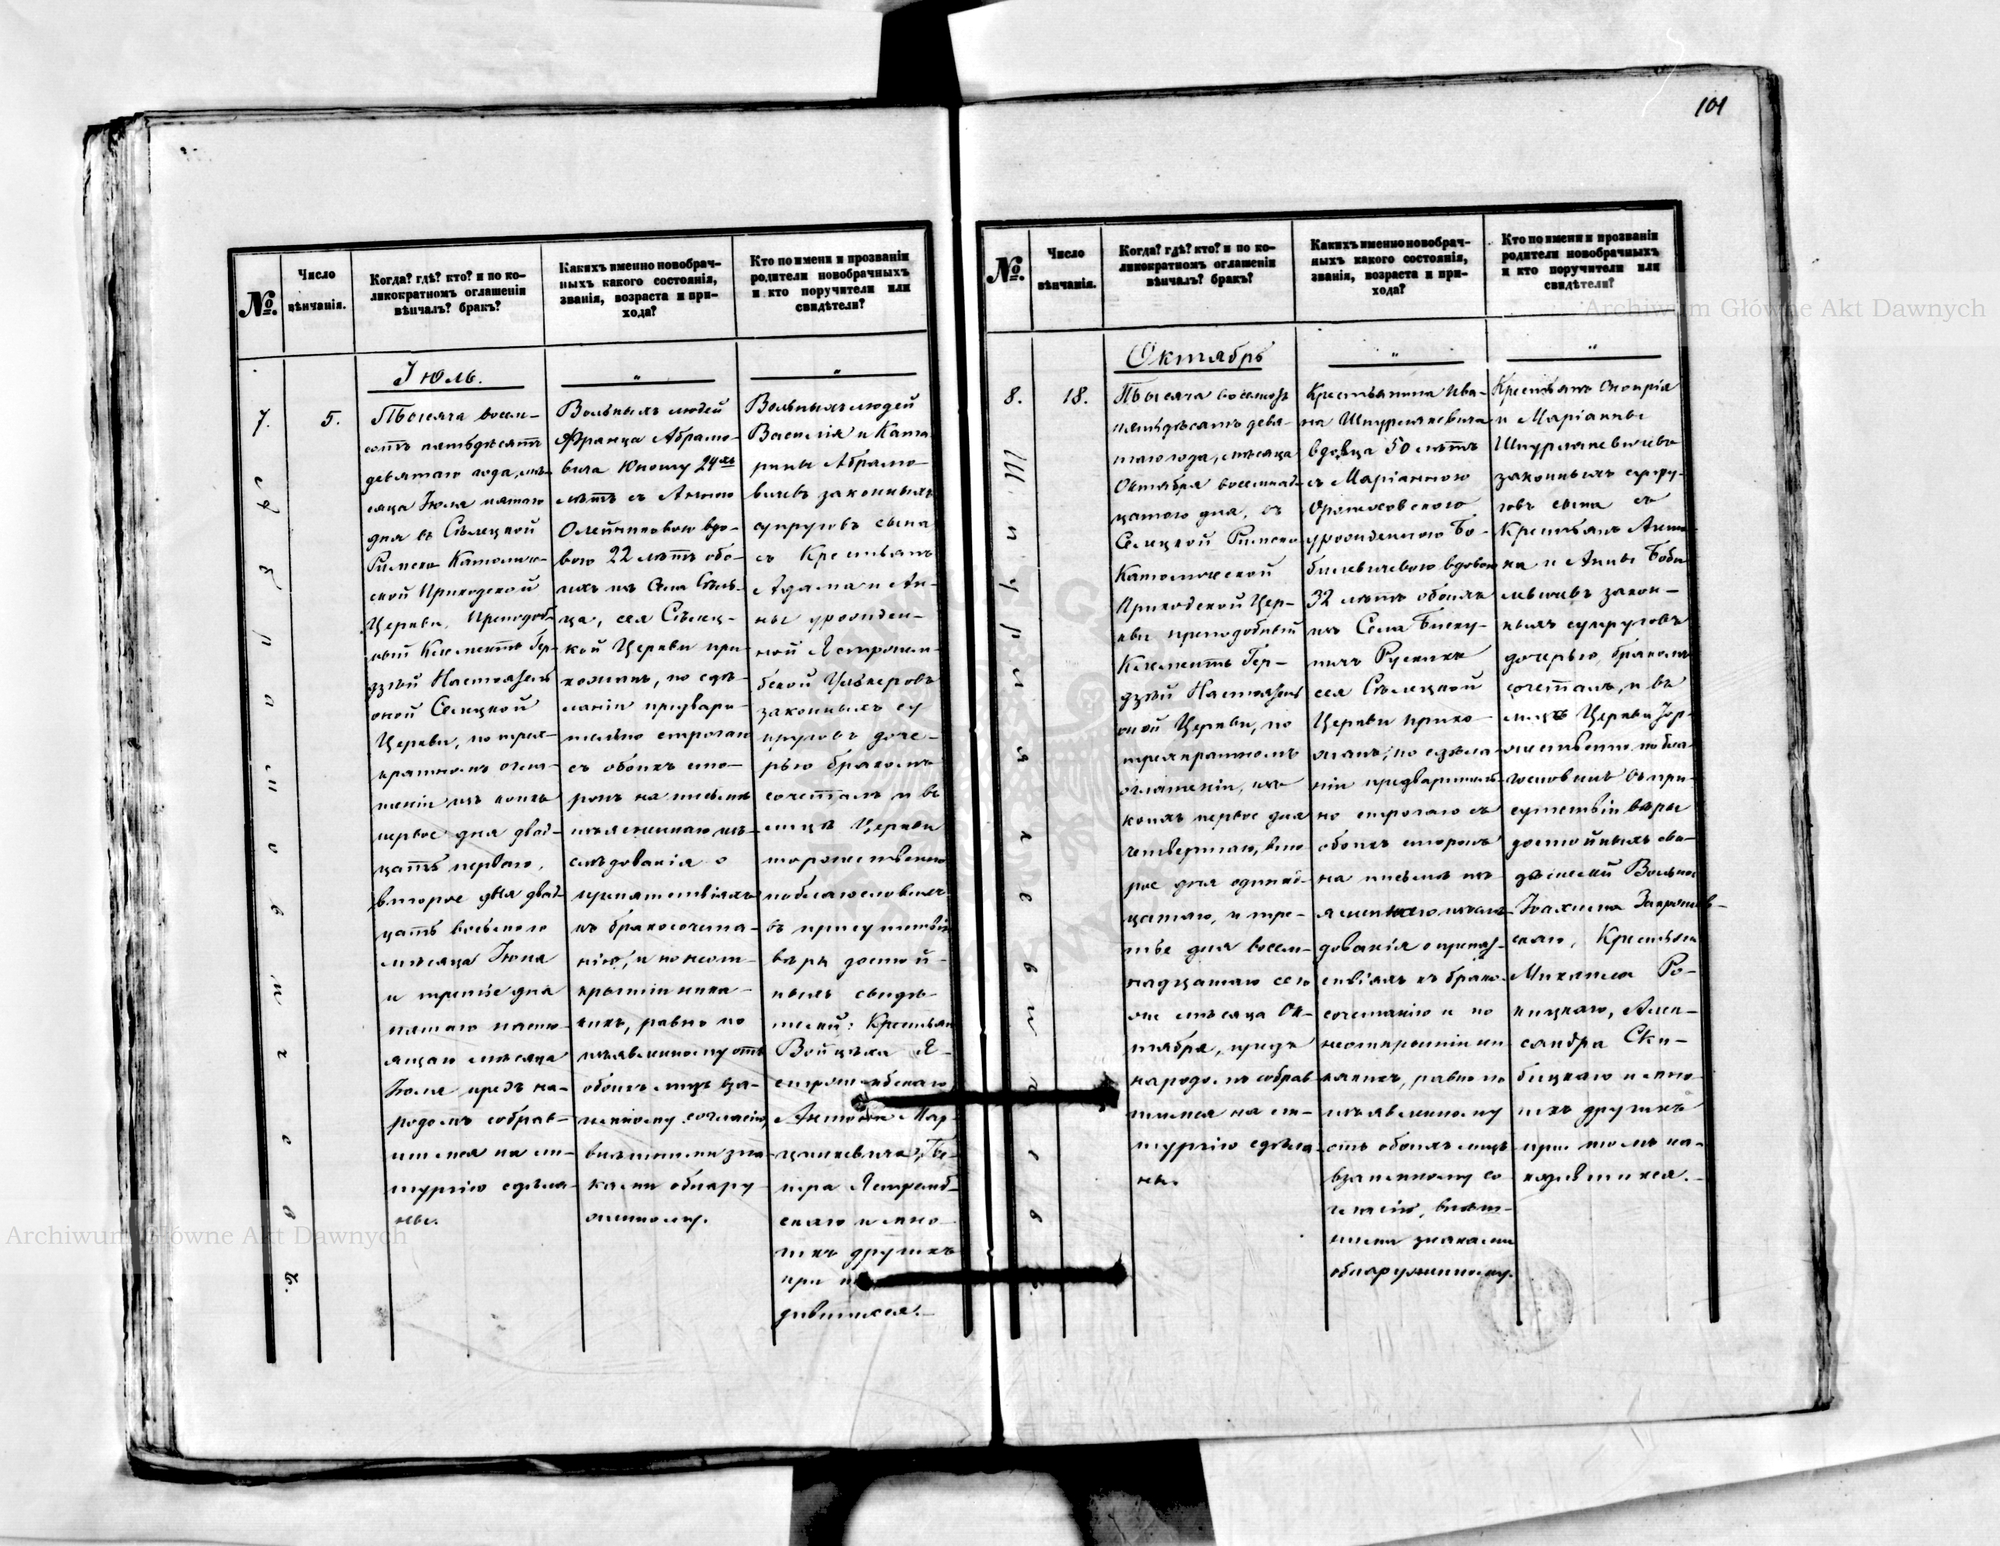 101
№.
Число
вѣнчанія.
Когда? гдѣ? кто? и по ко-
ликократномъ оглашеніи
вѣнчалъ? бракъ?
Какихъ именно новобрач-
ныхъ какого состоянія,
званія, возраста и при-
хода?
Кто по имени и прозванію
родители новобрачныхъ
и кто поручители или
свидѣтели?
7.
5.
Іюль.
Тысяча восем-
сотъ пятьдесятъ
девятаго года, мѣ-
сяца Іюля пятаго
дня въ Сѣлецкой
Римско Католиче-
ской Приходской
Церкви, Преподоб-
ный Климентъ Гер-
дзѣй Настоятель
оной Селицкой
Церкви, по трех-
кратномъ огла-
шеніи изъ коихъ
первое дня двад-
цать перваго,
второе дня двад-
цать восьмого
мѣсяца Іюня
и третье дня
пятаго насто-
ящаго мѣсяца
Іюля предъ на-
родомъ собрав-
шимся на ли-
тургію сдѣла-
ны.
Вольныхъ людей
Франца Абрамо-
вича Юношу 24хъ
лѣтъ съ Анною
Олейниковою вдо-
вою 22 лѣтъ обо-
ихъ изъ Села Сѣль-
ца, сея Сѣлец-
кой Церкви при-
хожанъ, по сдѣ-
ланіи предвари-
тельно строгаго
съ обоихъ сто-
ронъ на письмѣ
изъясненнаго из-
слѣдованія о
препятствіяхъ
къ бракосочета-
нію, и по неот-
крытіи ника-
кихъ, равно по
изъявленному отъ
обоихъ лицъ вза-
имному согласію,
внѣшними зна-
ками обнару-
женному.
Вольныхъ людей
Василія и Кате-
рины Абрамо-
вичевъ законныхъ
супруговъ сына
съ Крестьянъ
Адама и Ан-
ны урожден-
ной Ястржем-
бской
законныхъ су
пруговъ доче-
рью бракомъ
сочеталъ и въ
лицѣ Церкви
торжественно
поблагословилъ
въ присутствіи
вѣры достой-
ныхъ свидѣ-
телей: Крестьян
Войцѣха Я-
стржембскаго
Антона Мар-
цинкевича, Пе-
тра Ястржемб-
скаго и мно-
гихъ другихъ
при
дившихся.
№.
Число
вѣнчанія.
Когда? гдѣ? кто? и по ко-
ликократномъ оглашеніи
вѣнчалъ? бракъ?
Какихъ именно новобрач-
ныхъ какого состоянія,
званія, возраста и при-
хода?
Кто по имени и прозванію
родители новобрачныхъ
и кто поручители или
свидѣтели?
8.
18.
Октябрь
Тысяча восемсотъ
пятьдесятъ девя-
таго года, мѣсяца
Октября восемнад-
цатаго дня, въ
Селицкой Римско
Католической
Приходской Цер-
кви преподобный
Климентъ Гер-
дзѣй Настоятель
оной Церкви, по
трехкратномъ
оглашеніи, изъ
коихъ первое дня
четвертаго, вто
рое дня одинад-
цатаго, и тре-
тье дня восем-
надцатаго сего
же мѣсяца Ок-
тября, предъ
народомъ собрав
шимся на ли-
тургію сдѣла-
ны.
Крестьянина Ива-
на Шпурлякевича
вдовца 50 лѣтъ
съ Маріанною
урожденною Бо-
билевичевою вдовою
32 лѣтъ обоихъ
изъ Села Биску-
пичъ Рускихъ
сея Сѣлецкой
Церкви прихо-
жанъ; по сдѣла-
ніи предваритель-
но строгаго съ
обоихъ сторонъ
на письмѣ изъ-
ясненнаго изслѣ-
дованія о препят-
ствіяхъ къ брако-
сочетанію и по
неоткрытіи ни
какихъ, равно по
изъявленному
отъ обоихъ лицъ
взаимному со-
гласію, внѣш-
ними знаками
обнаруженному.
Крестьянъ Онопрія
и Маріанны
Шпурлякевичевъ
законныхъ супру-
говъ сына съ
Крестьянъ Анто-
на и Анны Боби
левичевъ закон-
ныхъ супруговъ
дочерью, бракомъ
сочеталъ, и въ
лицѣ Церкви Тор-
жественно побла-
гословилъ въ при-
сутствіи вѣры
достойныхъ сви-
дѣтелей Вольнаго
Іоахима Закржев-
скаго, Крестьян
Михаила Ро-
кицкаго, Алек-
сандра Ски-
бицкаго и мно-
гихъ другихъ
при томъ на-
ходившихся.
Archiwum Główne Akt Dawnych
Archiwum Główne Akt Dawnych